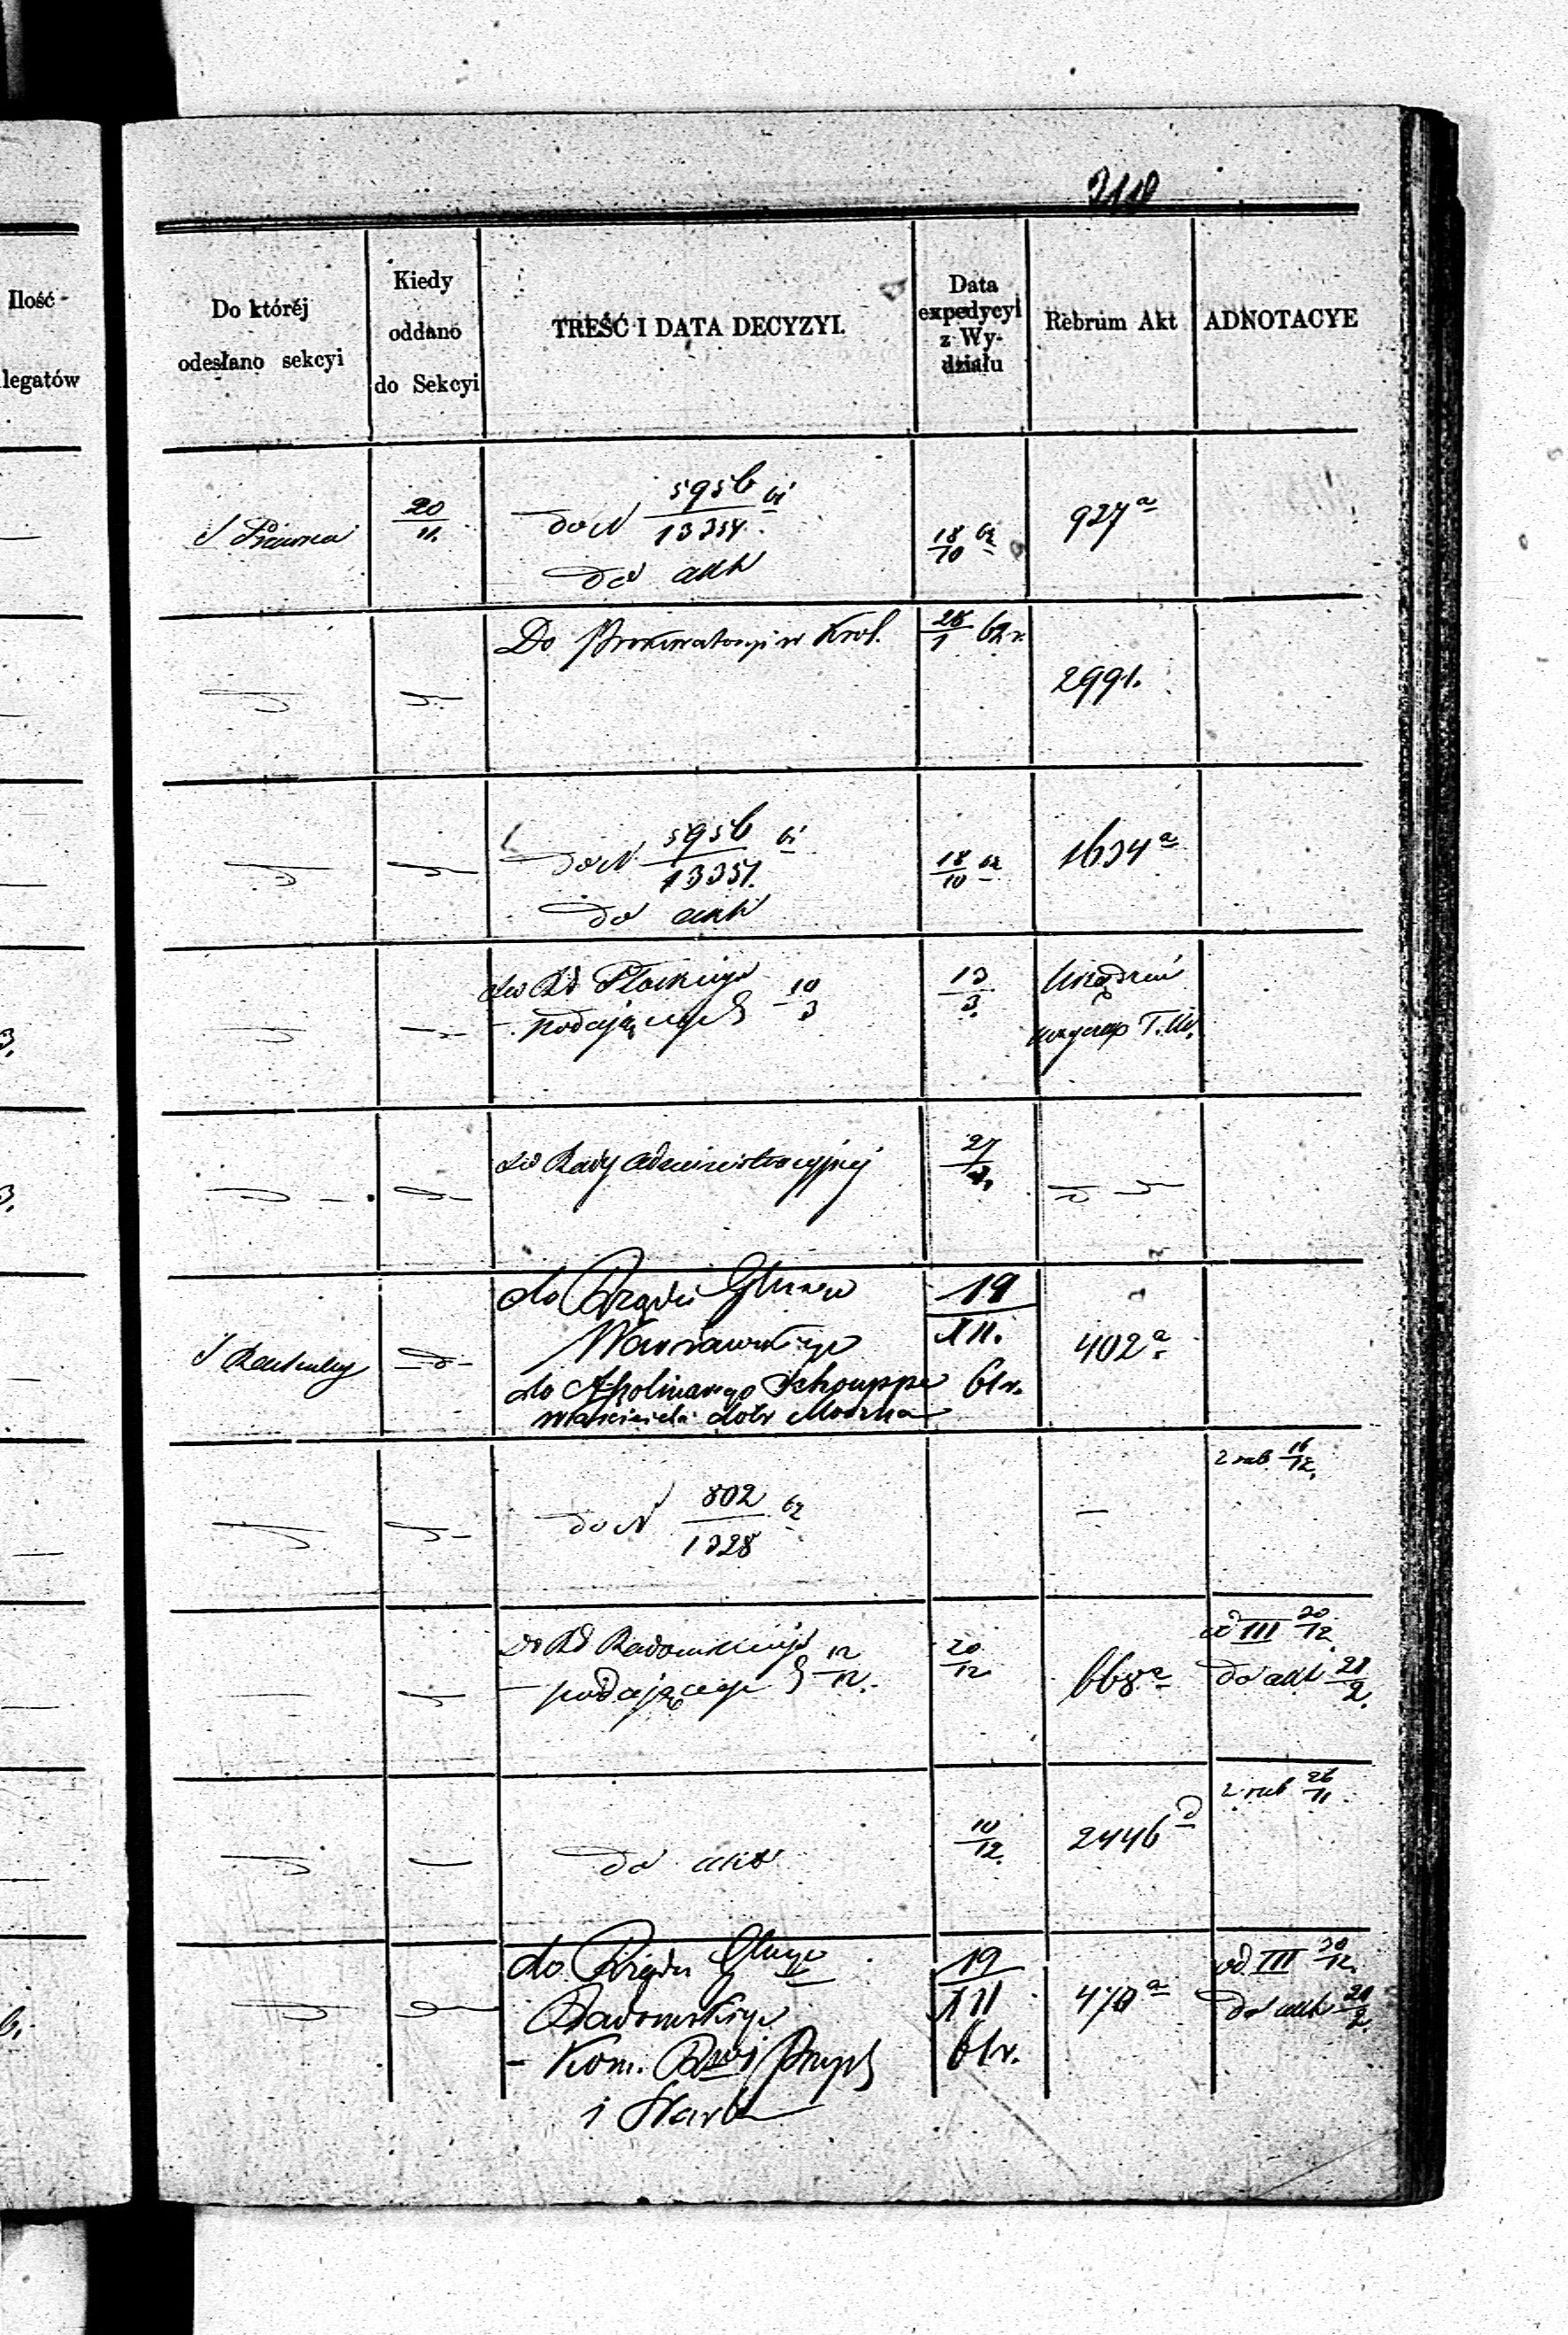 Ilość
legatów
Do któréj
odesłano sekcyi
Kiedy
oddano
do Sekcyi
TREŚĆ I DATA DECYZYI.
Data
expedycyi
z Wy-
działu
Rebrum Akt
ADNOTACYE
S Prawna
20/11.
do N 5956/13354 61
do akt
18/10 62
927a
Do Prokuratoryi w Król.
28/1 62 r.
2991.
do N 5956/13354. 61
do akt
18/10 62
1634a
do Rd Płockiego 10/3
podającego
13/3.
T. W.
do Rady Administracyjnej
27/
do Rządu Guber
Warszawskiego
do Apolinarego Schouppe
właściciela dóbr
19/XII.
61 r.
402a
do N 802/1328 62
2 rub 16/12.
do Rd Radomskiego 12/12.
podającego
20/12
668a
od III 20/12.
do akt 21/2.
do akt
10/12.
2446d
2 rub 26/11.
do Rządu Gbugo
Radomskiego
- Kom. Rwéj Przych
i Skarbu
19/XII
61 r.
470a
od III 20/12.
do akt 21/2.